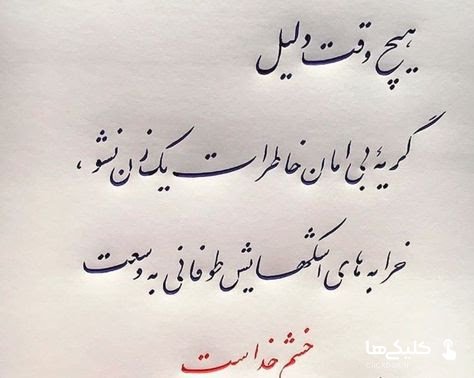 هیچ وقت دلیل
گریهٔ بی امان خاطرات یک زن نشو ،
خرابه های اشکهایش طوفانی به وسعت
خشم خداست
کلیکی‌ها